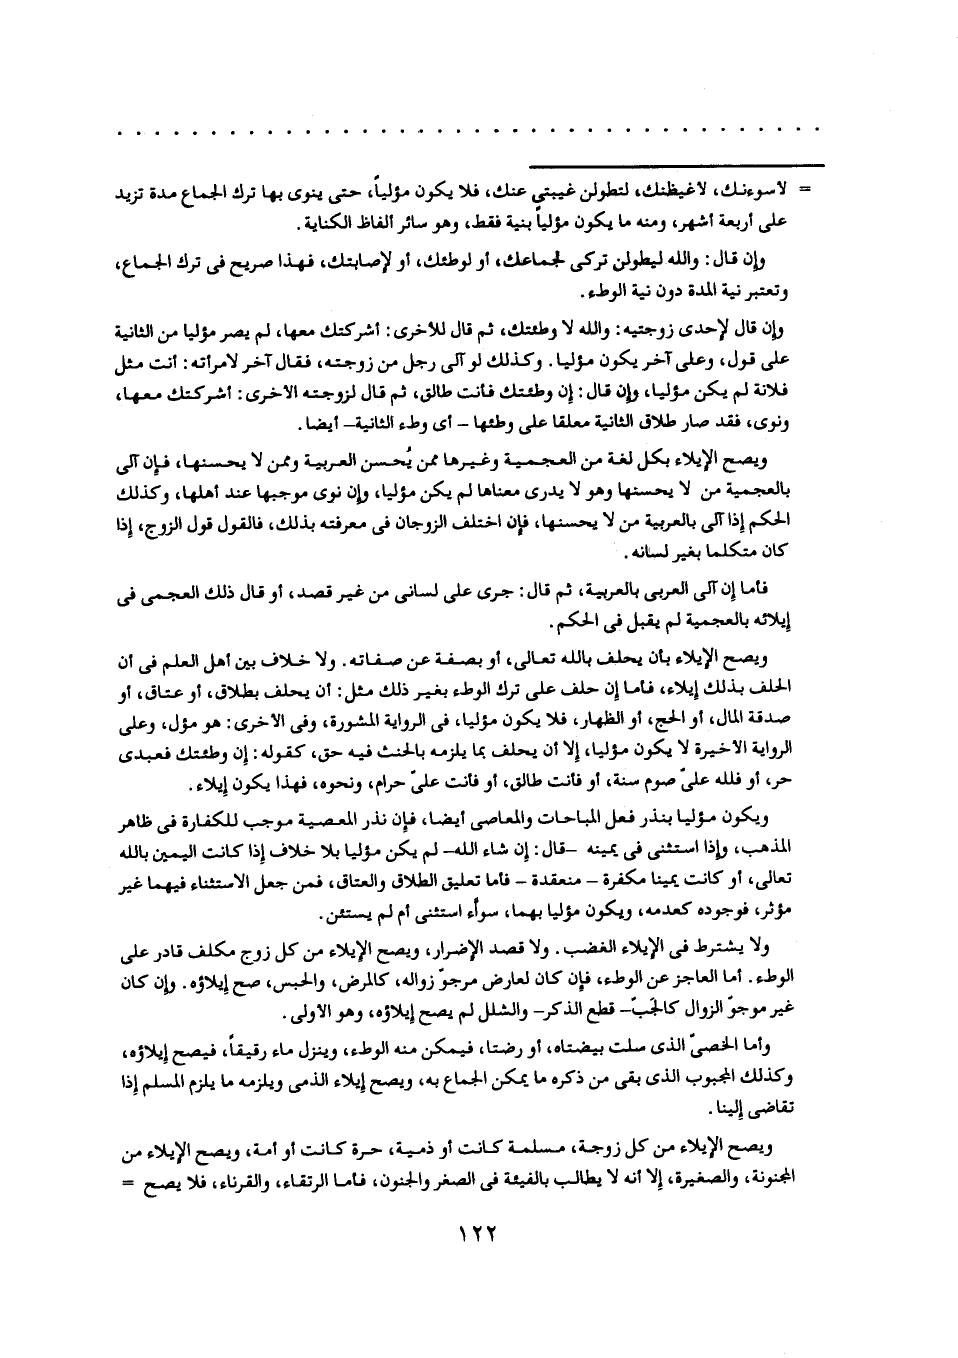 = لاسوءنك، لاغيظنك، لتطولن غيبتى عنك، فلا يكون مؤلياً، حتى ينوى بها ترك الجماع مدة تزيد
على أربعة أشهر، ومنه ما يكون مؤلياً بنية فقط، وهو سائر ألفاظ الكناية.
وإن قال: والله ليطولن تركى لجماعك، أو لوطئك، أو لإصابتك، فهذا صريح فى ترك الجماع،
وتعتبر نية المدة دون نية الوطء.
وإن قال لإحدى زوجتيه: والله لا وطئتك، ثم قال للأخرى: أشركتك معها، لم يصر مؤليا من الثانية
على قول، وعلى آخر يكون مؤليا. وكذلك لو آلى رجل من زوجته، فقال آخر لامرأته: أنت مثل
فلانة لم يكن مؤليا، وإن قال: إن وطئتك فأنت طالق، ثم قال لزوجته الاخرى: أشركتك معها،
ونوى، فقد صار طلاق الثانية معلقا على وطئها - أى وطء الثانية- أيضا.
ويصح الإيلاء بكل لغة من العجمية وغيرها ممن يُحسن العربية وممن لا يحسنها، فإن آلى
بالعجمية من لا يحسنها وهو لا يدرى معناها لم يكن مؤليا، وإن نوى موجبها عند أهلها، وكذلك
الحكم إذا آلى بالعربية من لا يحسنها، فإن اختلف الزوجان فى معرفته بذلك، فالقول قول الزوج، إذا
كان متكلما بغير لسانه.
فأما إن آلى العربى بالعربية، ثم قال: جرى على لسانى من غير قصد، أو قال ذلك العجمى فى
إيلائه بالعجمية لم يقبل فى الحكم.
ويصح الإيلاء بأن يحلف بالله تعالى، أو بصفة عن صفاته. ولا خلاف بين أهل العلم فى أن
الحلف بذلك إيلاء، فأما إن حلف على ترك الوطء بغير ذلك مثل: أن يحلف بطلاق، أو عتاق، أو
صدقة المال، أو الحج، أو الظهار، فلا يكون مؤليا، فى الرواية المشورة، وفى الاخرى: هو مؤل، وعلى
الرواية الاخيرة لا يكون مؤليا، إلا أن يحلف بما يلزمه بالحنث فيه حق، كقوله: إن وطئتك فعبدى
حر، أو فلله علىّ صوم سنة، أو فأنت طالق، أو فأنت علىّ حرام، ونحوه، فهذا يكون إيلاء.
ويكون مؤليا بنذر فعل المباحات والمعاصى أيضا، فإن نذر المعصية موجب للكفارة فى ظاهر
المذهب، وإذا استثنى فى يمينه -قال: إن شاء الله- لم يكن مؤليا بلا خلاف إذا كانت اليمين بالله
تعالى، أو كانت يمينا مكفرة - منعقدة - فأما تعليق الطلاق والعتاق، فمن جعل الاستثناء فيهما غير
مؤثر، فوجوده كعدمه، ويكون مؤليا بهما، سوأء استثنى أم لم يستثن.
ولا يشترط فى الإيلاء الغضب. ولا قصد الإضرار، ويصح الإيلاء من كل زوج مكلف قادر على
الوطء. أما العاجز عن الوطء، فإن كان لعارض مرجوّ زواله، كالمرض، والحبس، صح إيلاؤه. وإن كان
غير موجوّ الزوال كالجَبّ- قطع الذكر- والشلل لم يصح إيلاؤه، وهو الاولى.
وأما الخصىّ الذى سلت بيضتاه، أو رضتا، فيمكن منه الوطء، وينزل ماء رقيقاً، فيصح إيلاؤه،
وكذلك المجبوب الذى بقى من ذكره ما يمكن الجماع به، ويصح إيلاء الذمى ويلزمه ما يلزم المسلم إذا
تقاضى إلينا.
ويصح الإيلاء من كل زوجة، مسلمة كانت أو ذمية، حرة كانت أو أمة، ويصح الإيلاء من
المجنونة، والصغيرة، إلا أنه لا يطالب بالفيئة فى الصغر والجنون، فأما الرتقاء، والقرناء، فلا يصح =
١٢٢